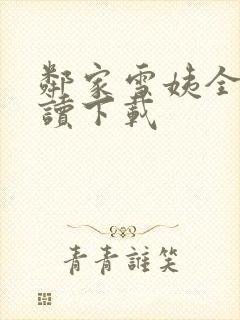 鄰家雪姨全
讀下載
青青誰笑